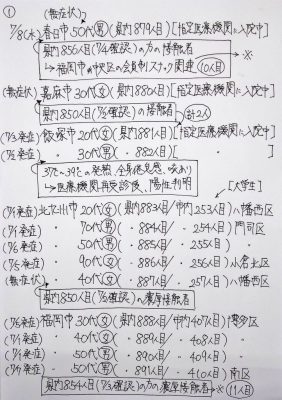 ①
(無症状)
7/8(水) 春日市50代(男)(県内879人目)[指定医療機関に入院中]
県内856人目(7/4確認)の方の接触者
→福岡市中央区の会員制スナック関連 (10人目) →※
(無症状) 嘉麻市30代(女)(県内880人目)[指定医療機関に入院中]
県内850人目(7/3確認)の接触者 計2人
(7/3発症) 飯塚市20代(女)(県内881人目)[指定医療機関に入院中]
(7/5発症) 〃 30代(男)( 〃 882人目)[ 〃 ]
37℃~39℃の発熱、全身倦怠感、咳あり
→医療機関再受診後、陽性判明
[大学生]
(7/1発症) 北九州市20代(女)(県内883人目/市内253人目)八幡西区
(7/1発症) 〃 70代(男)( 〃 884人目/ 〃 254人目)門司区
(7/5発症) 〃 50代(男)( 〃 885人目/ 〃 255人目) 〃
(7/6発症) 〃 90代(女)( 〃 886人目/ 〃 256人目)小倉北区
(無症状) 〃 40代(女)( 〃 887人目/ 〃 257人目)八幡西区
県内850人目(7/3確認)の濃厚接触者
(7/5発症) 福岡市30代(女)(県内888人目/市内407人目)博多区
(7/4発症) 〃 40代(女)( 〃 889人目/ 〃 408人目) 〃
(7/4発症) 〃 50代(男)( 〃 890人目/ 〃 409人目) 〃
(7/7発症) 〃 50代(男)( 〃 891人目/ 〃 410人目)南区
県内854人目(7/3確認)の方の濃厚接触者→※ (11人目)